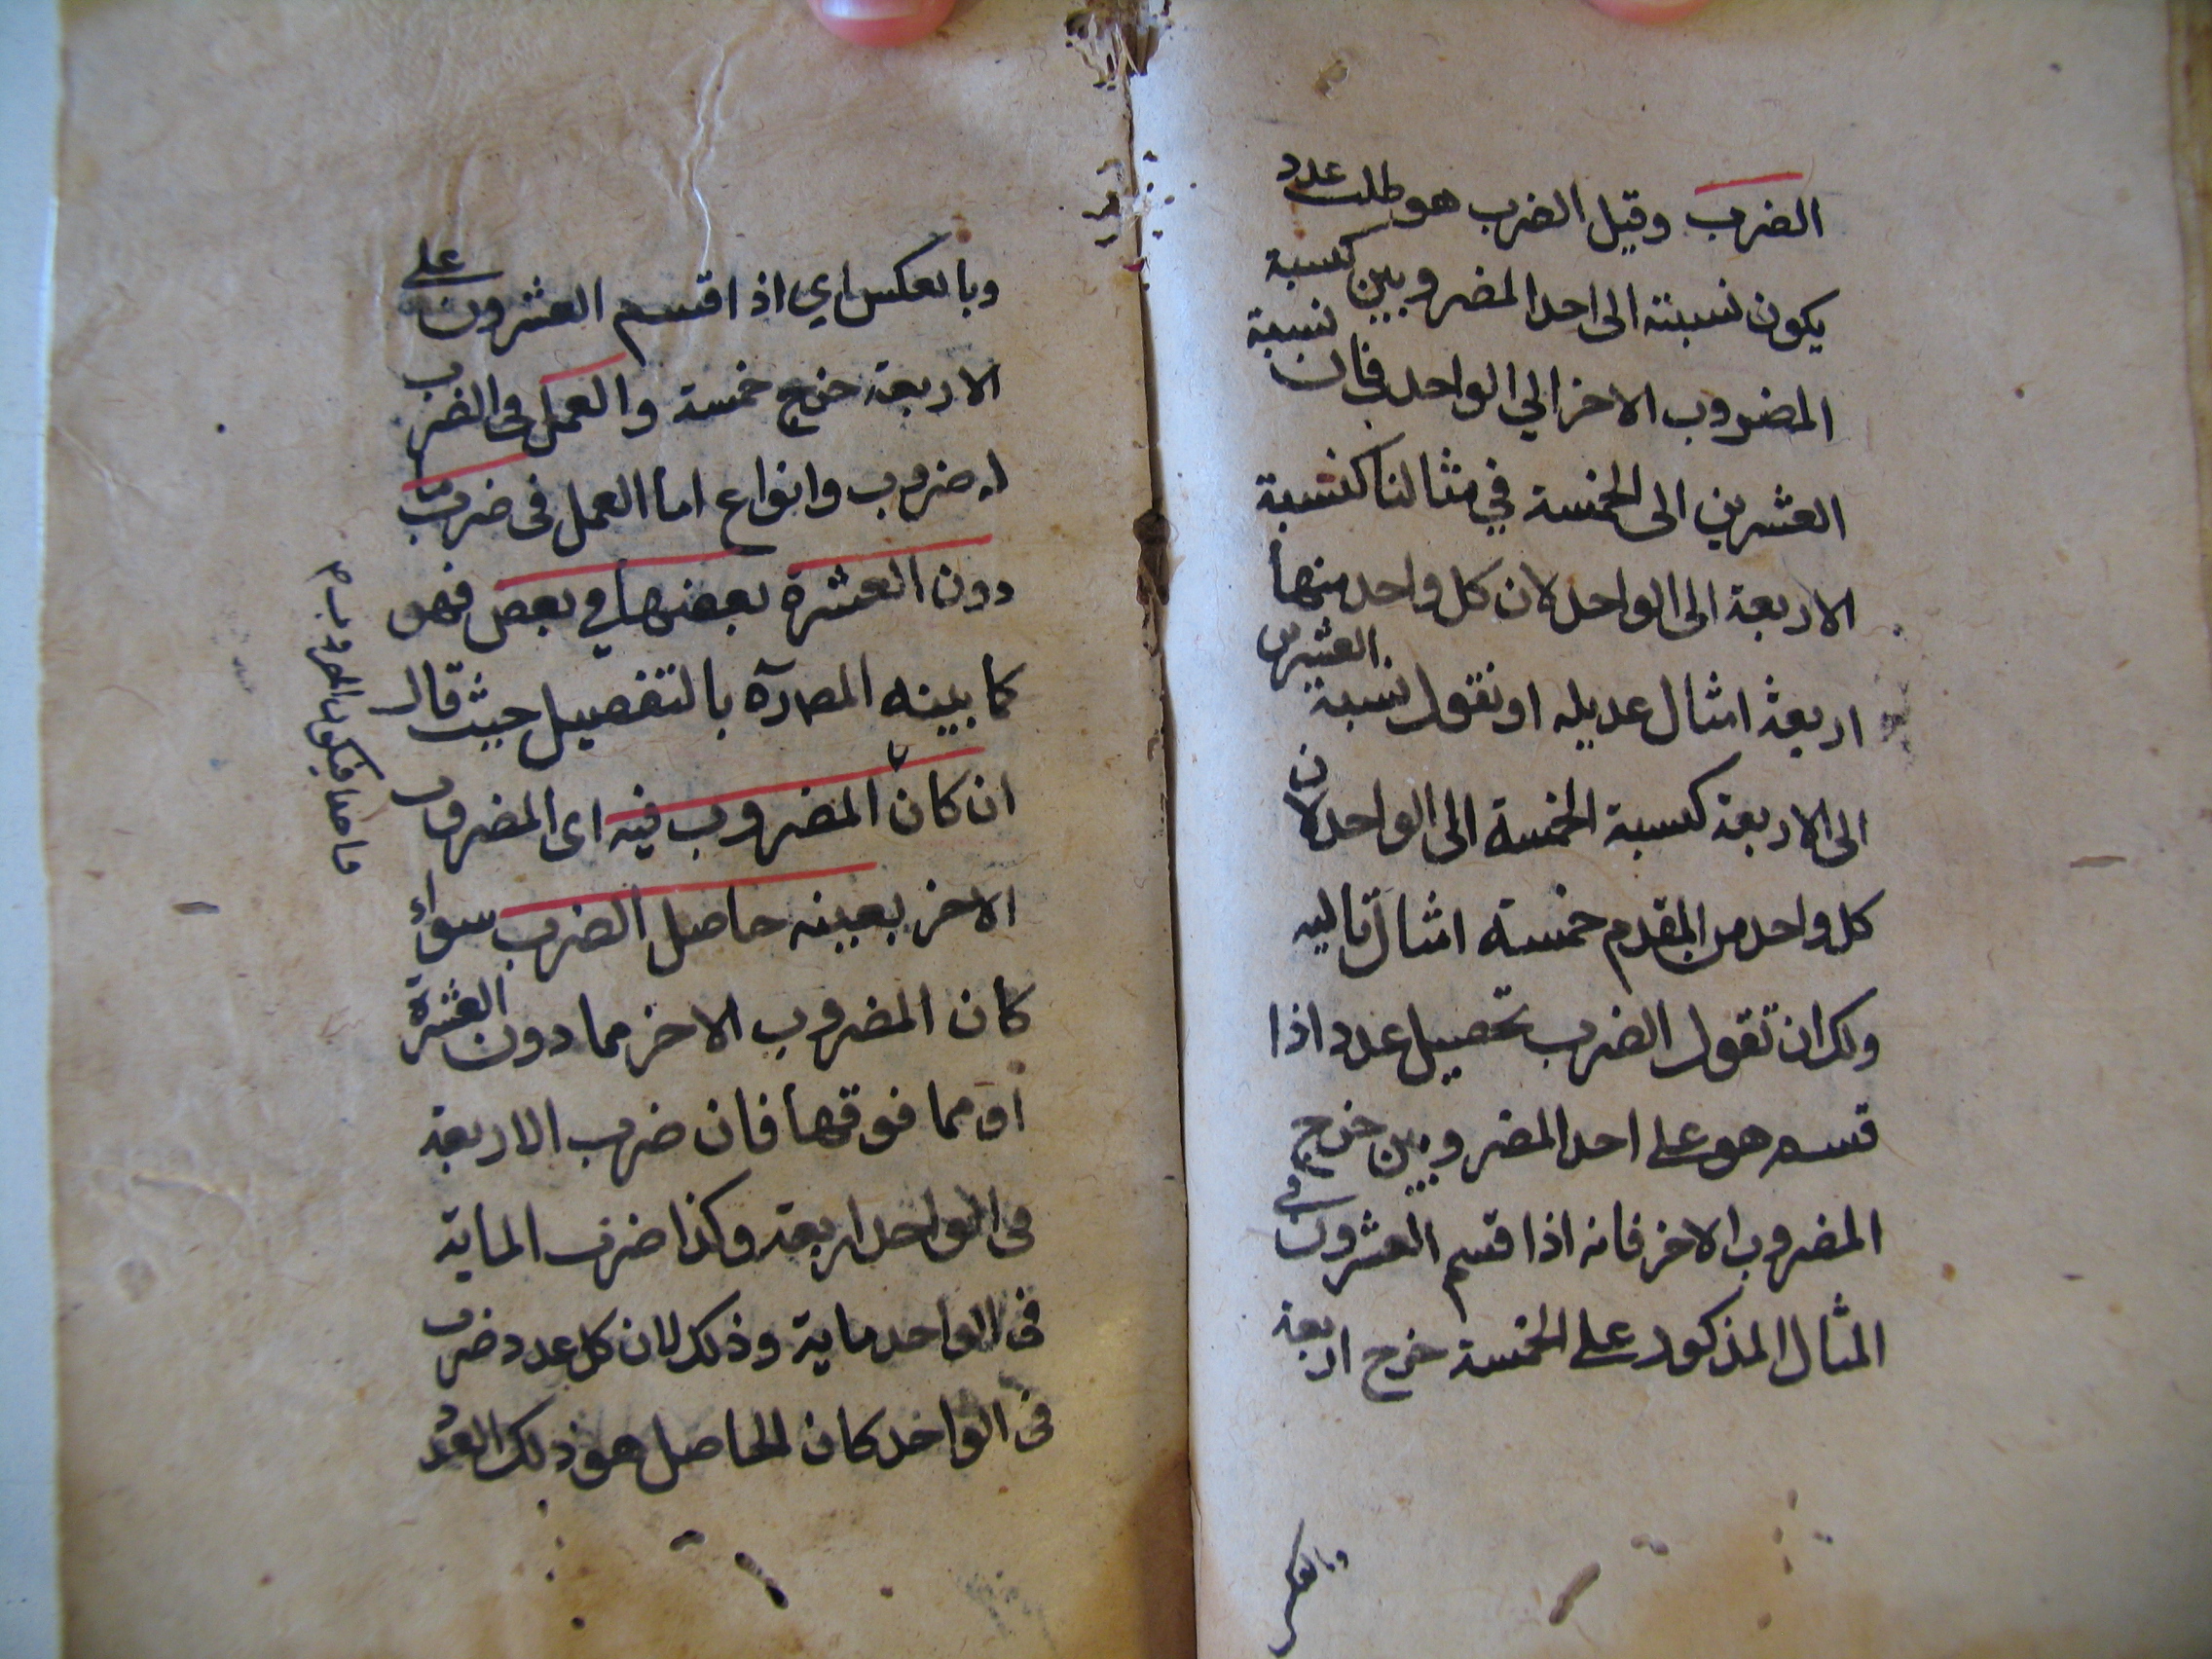 الضرب وقيل الضرب هو طلب عدد
يكون نسبته الى احد المضروبين كنسبة
المضروب الاخر الي الواحد فان نسبة
العشرين الى الخمسة في مثالنا كنسبة
الاربعة الى الواحد لان كل واحد منها
اربعة امثال عديله او نقول نسبة العشرين
الى الاربعة كنسبة الخمسة الى الواحد لان
كل واحد من المقدم خمسة امثال تاليه
ولك ان تقول الضرب تحصيل عدد اذا
قسم هو على احد المضروبين خرج
المضروب الاخر فانه اذا قسم العشرون في
المثال المذكور على الخمسة خرج اربعة
وبالعكس
وبالعكس اي اذا قسم العشرون على
الاربعة خرج خمسة والعمل في الضرب
له ضروب وانواع اما العمل فى ضرب ما
دون العشرة بعضها في بعض فهو
كما بينه المص ره بالتفصيل حيث قال
ان كان المضروب فيه اى المضروب
الاخر بعينه حاصل الضرب سواء
كان المضروب الاخر مما دون العشرة
او مما فوقها فان ضرب الاربعة
فى الواحد اربعة وكذا ضرب الماية
فى الواحد ماية وذلك لان كل عدد ضرب
فى الواحد كان الحاصل هو ذلك العدد
فيكون المضروب